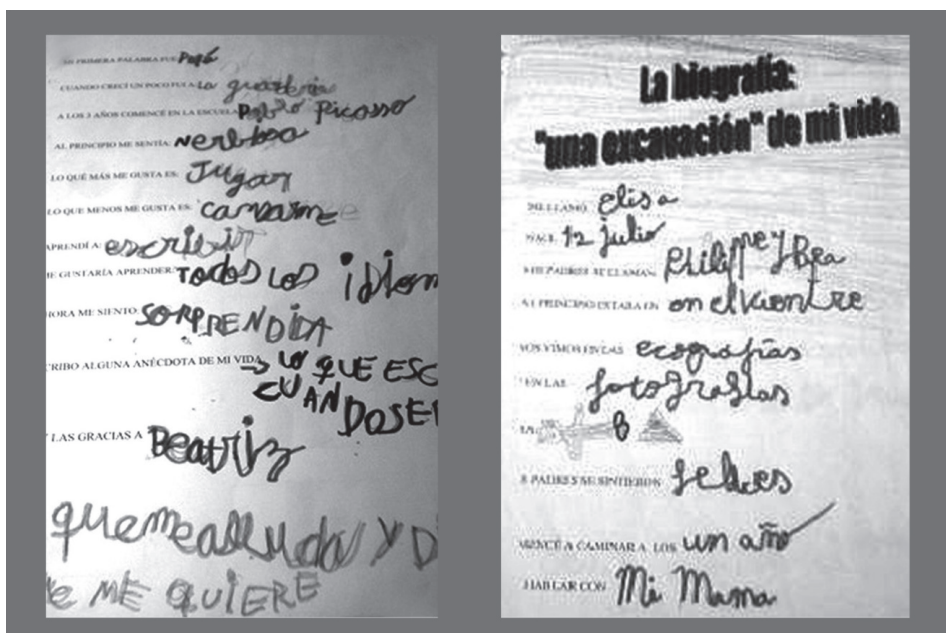 MI PRIMERA PALABRA FUE Papá
CUANDO CRECÍ UN POCO FUI A la guarderia
A LOS 3 AÑOS COMENCÉ EN LA ESCUELA Pablo Picasso
AL PRINCIPIO ME SENTÍA: Nerbiosa
LO QUÉ MÁS ME GUSTA ES: Jugar
LO QUE MENOS ME GUSTA ES: cansarme
APRENDÍ A: escribir
ME GUSTARÍA APRENDER: TODOS LOS idiom
HORA ME SIENTO: SORPRENDIDA
CRIBO ALGUNA ANÉCDOTA DE MI VIDA LO QUE ESC
CUANDO SE
LAS GRACIAS A Beatriz
que me alluda Y D
E ME QUIERE
La biografía:
"una excavación" de mi vida
ME LLAMO elisa
NACÍ 12 julio
MIS PADRES SE LLAMAN Philippe y Bea
AL PRINCIPIO ESTABA EN en el vientre
NOS VIMOS EN LAS ecografías
EN LAS fotografías
8
S PADRES SE SINTIERON felices
MENCÉ A CAMINAR A LOS un año
HABLAR CON Mi Mama